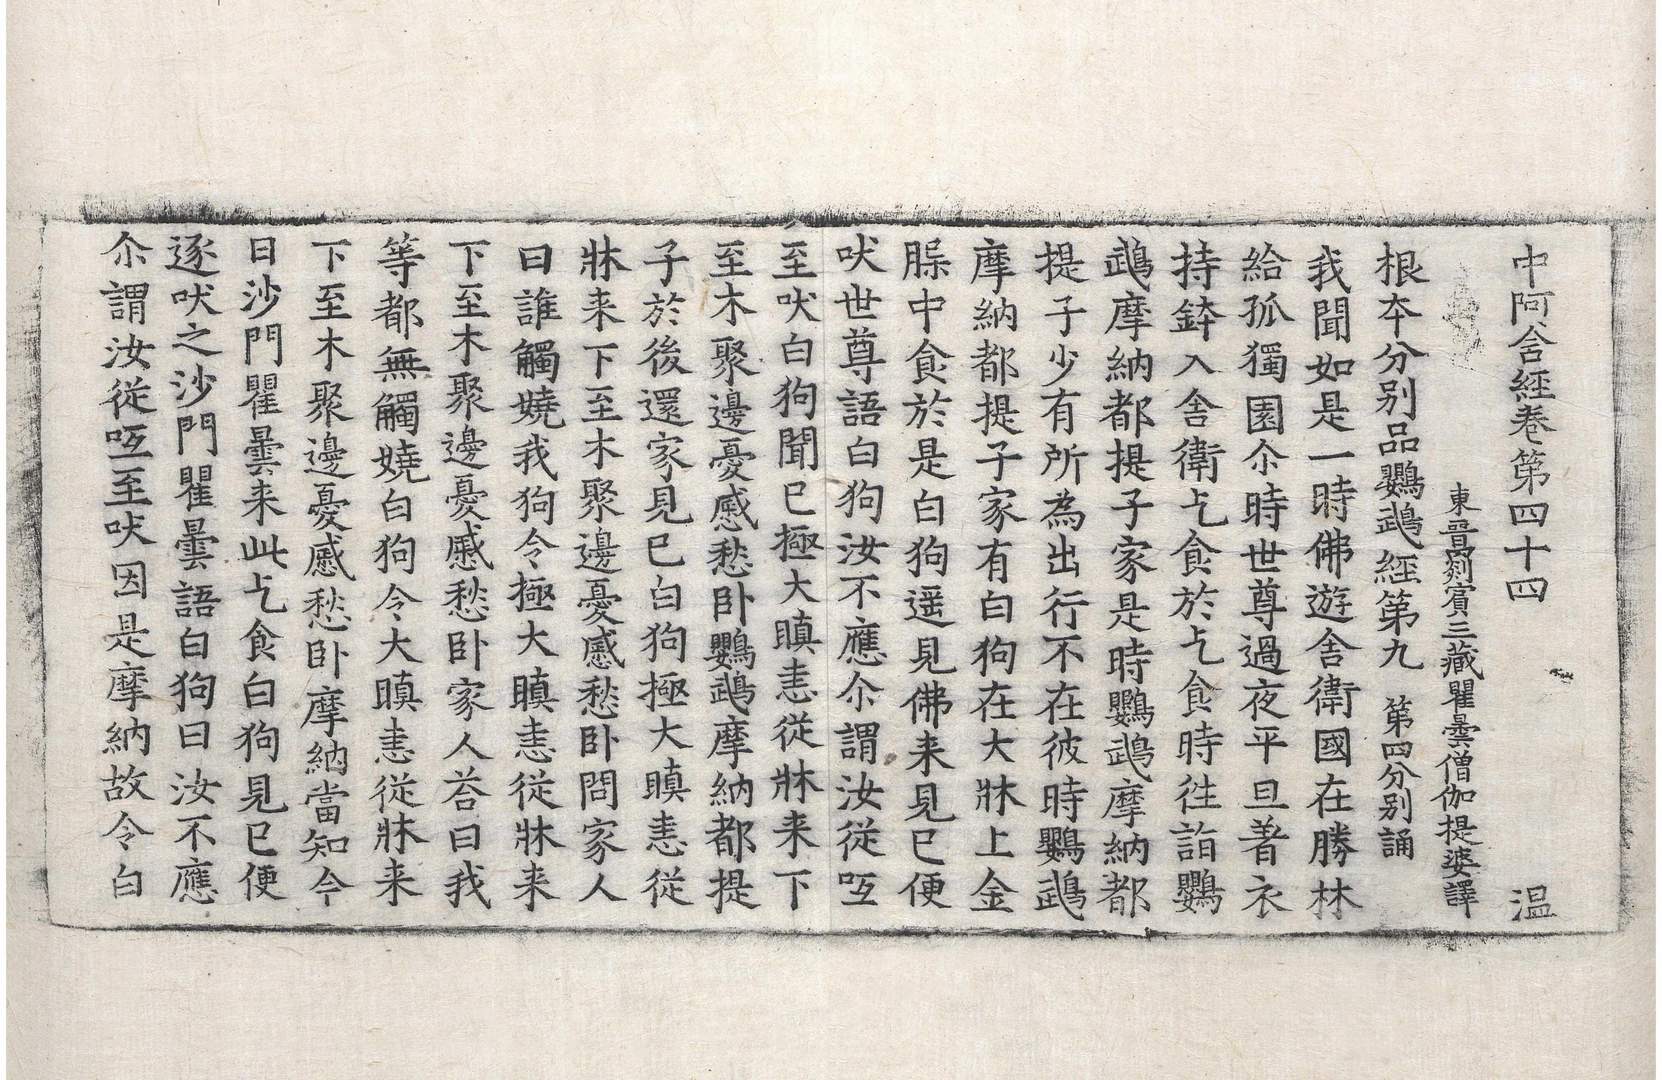 中阿含經卷第四十四 温
東晉罽賓三藏瞿曇僧伽提婆譯
根夲分別品鸚鵡經第九 第四分別誦
我聞如是一時佛遊舍衛國在勝林
給孤獨園尒時世尊過夜平旦著衣
持鉢入舍衛乞食於乞食時徃詣鸚
鵡摩納都提子家是時鸚鵡摩納都
提子少有所為出行不在彼時鸚鵡
摩納都提子家有白狗在大牀上金
槃中食於是白狗遥見佛来見已便
吠世尊語白狗汝不應尒謂汝従呧
至吠白狗聞已極大瞋恚従牀来下
至木聚邊憂慼愁卧鸚鵡摩納都提
子於後還家見已白狗極大瞋恚従
牀来下至木聚邊憂慼愁卧問家人
曰誰觸嬈我狗令極大瞋恚従牀来
下至木聚邊憂慼愁卧家人荅曰我
等都無觸嬈白狗令大瞋恚従牀来
下至木聚邊憂慼愁卧摩納當知今
日沙門瞿曇来此乞食白狗見已便
逐吠之沙門瞿曇語白狗曰汝不應
尒謂汝従呧至吠因是摩納故令白